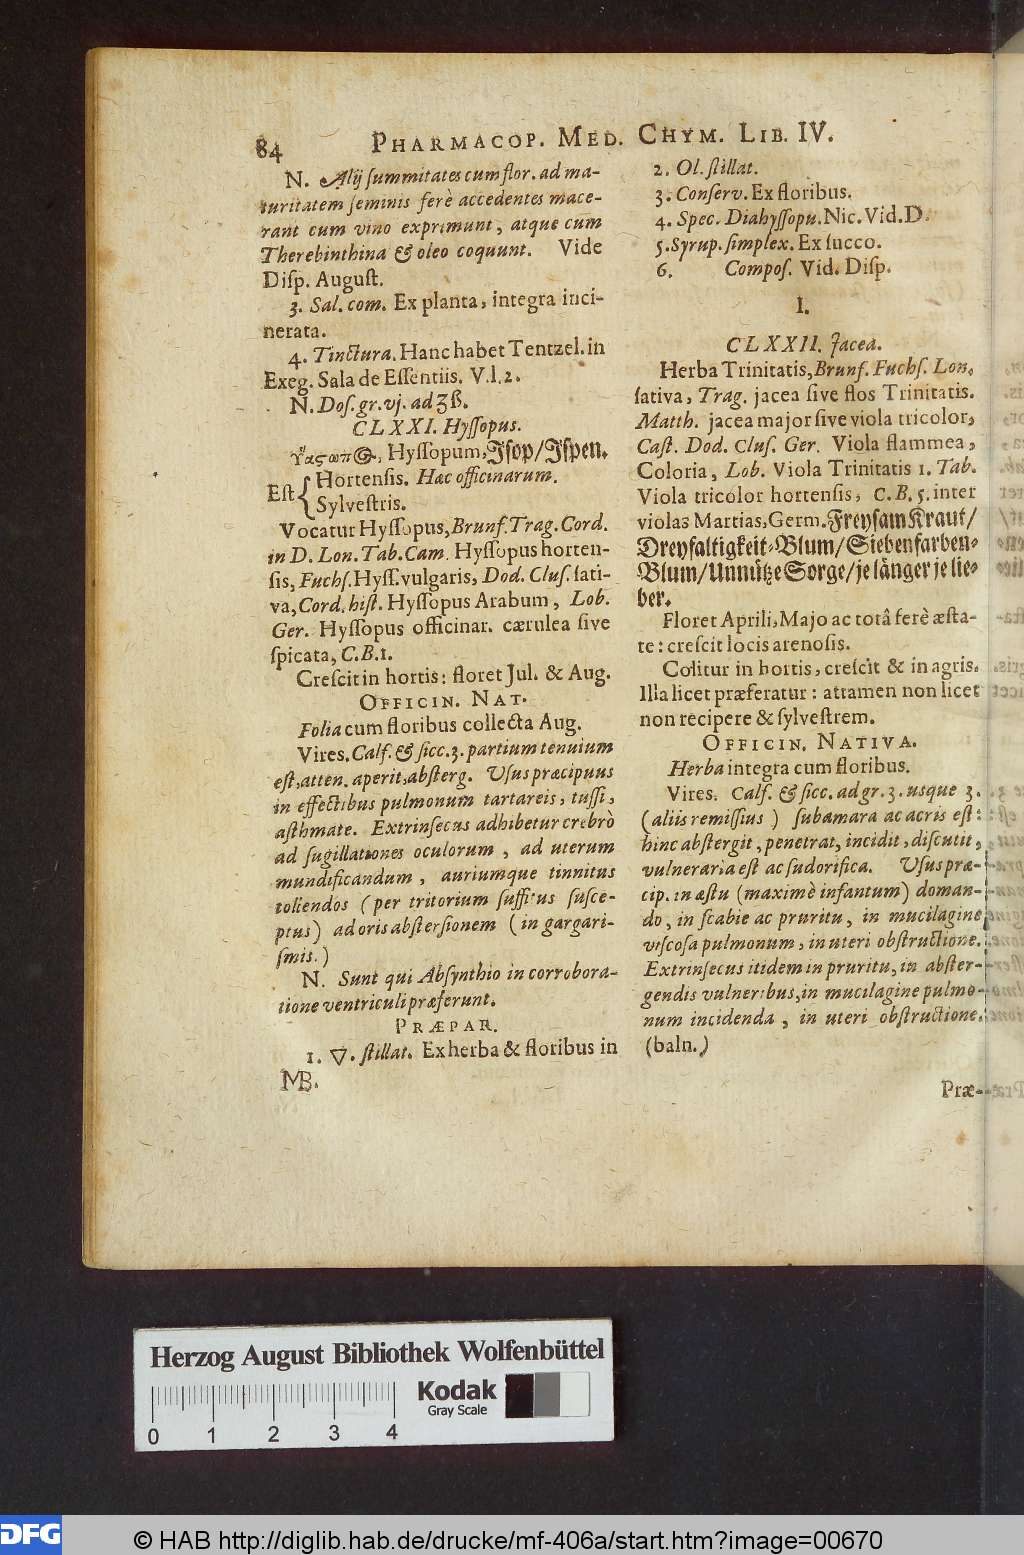 84 PHARMACOP. MED. CHYM. LIB. IV.
N. Alij ſummitates cum flor. ad ma-
turitatem ſeminis ferè accedentes mace-
rant cum vino exprimunt, atque cum
Therebinthina & oleo coquunt. Vide
Diſp. Auguſt.
3. Sal. com. Ex planta, integra inci-
nerata.
4. Tinctura. Hanc habet Tentzel. in
Exeg. Sala de Eſſentiis. V. l. 2.
N. Doſ. gr. vj. ad ʒß.
CLXXI. Hyſſopus.
Hyſſopum, Iſop/ Iſpen.
Eſt { Hortenſis. Hac officinarum.
Sylveſtris.
Vocatur Hyſſopus, Brunf. Trag. Cord.
in D. Lon. Tab. Cam. Hyſſopus horten-
ſis, Fuchſ. Hyſſ. vulgaris, Dod. Cluſ. ſati-
va, Cord. hiſt. Hyſſopus Arabum, Lob.
Ger. Hyſſopus officinar. cærulea ſive
ſpicata, C. B. 1.
Creſcit in hortis: floret Jul. & Aug.
OFFICIN. NAT.
Folia cum floribus collecta Aug.
Vires. Calf. & ſicc. 3. partium tenuium
eſt, atten. aperit, abſterg. Uſus præcipuus
in effectibus pulmonum tartareis, tuſſi,
aſthmate. Extrinſecus adhibetur crebrò
ad ſugillationes oculorum, ad uterum
mundificandum, auriumque tinnitus
tollendos (per tritorium ſuffitus ſuſce-
ptus) ad oris abſterſionem (in gargari-
ſmis.)
N. Sunt qui Abſynthio in corrobora-
tione ventriculi præferunt.
PRÆPAR.
1. 🜄. ſtillat. Ex herba & floribus in
MB.
2. Ol. ſtillat.
3. Conſerv. Ex floribus.
4. Spec. Diahyſſopu. Nic. Vid. D.
5. Syrup. ſimplex. Ex ſucco.
6. Compoſ. Vid. Diſp.
I.
CLXXII. Jacea.
Herba Trinitatis, Brunf. Fuchſ. Lon.
ſativa, Trag. jacea ſive flos Trinitatis.
Matth. jacea major ſive viola tricolor,
Caſt. Dod. Cluſ. Ger. Viola flammea,
Coloria, Lob. Viola Trinitatis 1. Tab.
Viola tricolor hortenſis, C. B. 5. inter
violas Martias, Germ. Freyſam Kraut/
Dreyfaltigkeit-Blum/ Siebenfarben-
Blum/ Unnütze Sorge/ je länger je lie-
ber.
Floret Aprili, Majo ac totâ ferè æſta-
te: creſcit locis arenoſis.
Colitur in hortis, creſcit & in agris.
Illa licet præferatur: attamen non licet
non recipere & ſylveſtrem.
OFFICIN. NATIVA.
Herba integra cum floribus.
Vires. Calf. & ſicc. ad gr. 3. usque 3.
(aliis remiſſius) ſubamara ac acris eſt:
hinc abſtergit, penetrat, incidit, diſcutit,
vulneraria eſt ac ſudorifica. Uſus præ-
cip. in æſtu (maximè infantum) doman-
do, in ſcabie ac pruritu, in mucilagine
viſcoſa pulmonum, in uteri obſtructione.
Extrinſecus itidem in pruritu, in abſter-
gendis vulneribus, in mucilagine pulmo-
num incidenda, in uteri obſtructione.
(baln.)
Præ-
Herzog August Bibliothek Wolfenbüttel
Kodak
Gray Scale
0 1 2 3 4
DFG © HAB http://diglib.hab.de/drucke/mf-406a/start.htm?image=00670